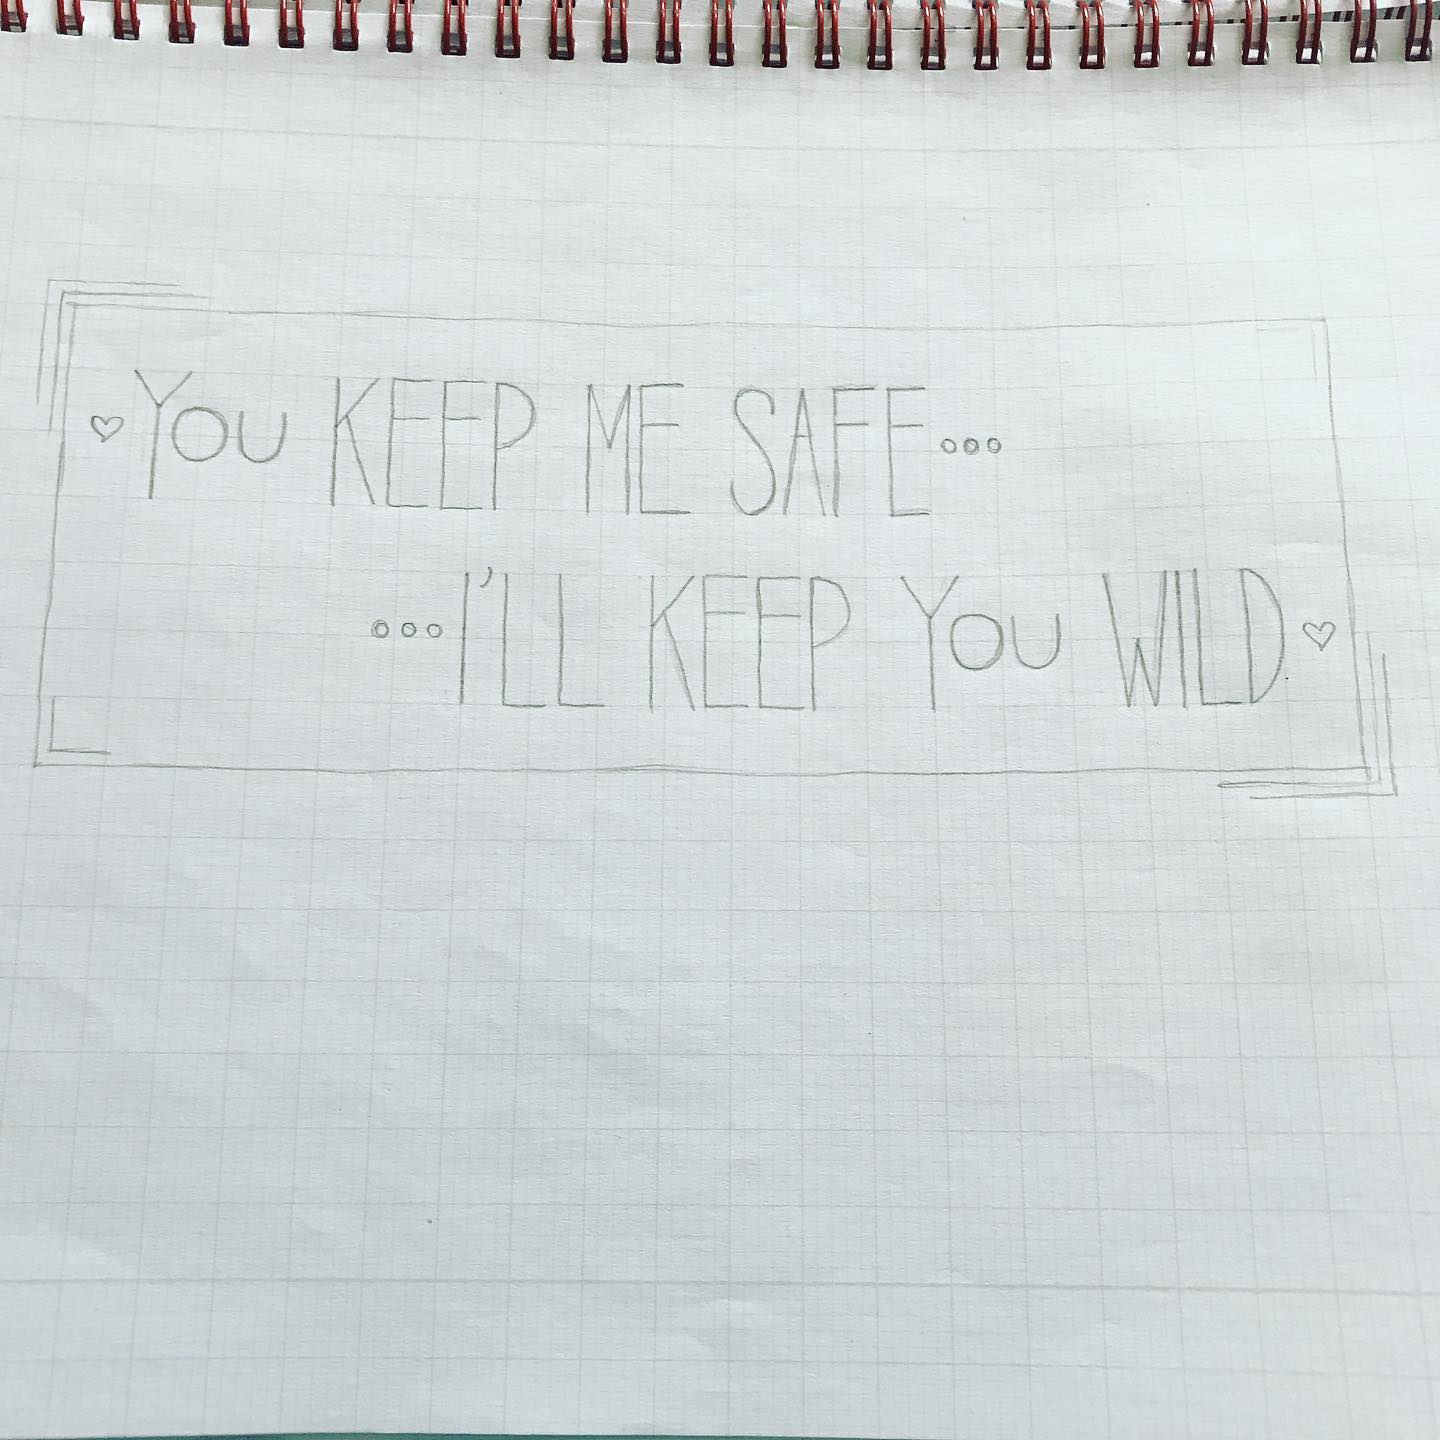 ♡ YOU KEEP ME SAFE...
...I'LL KEEP YOU WILD ♡